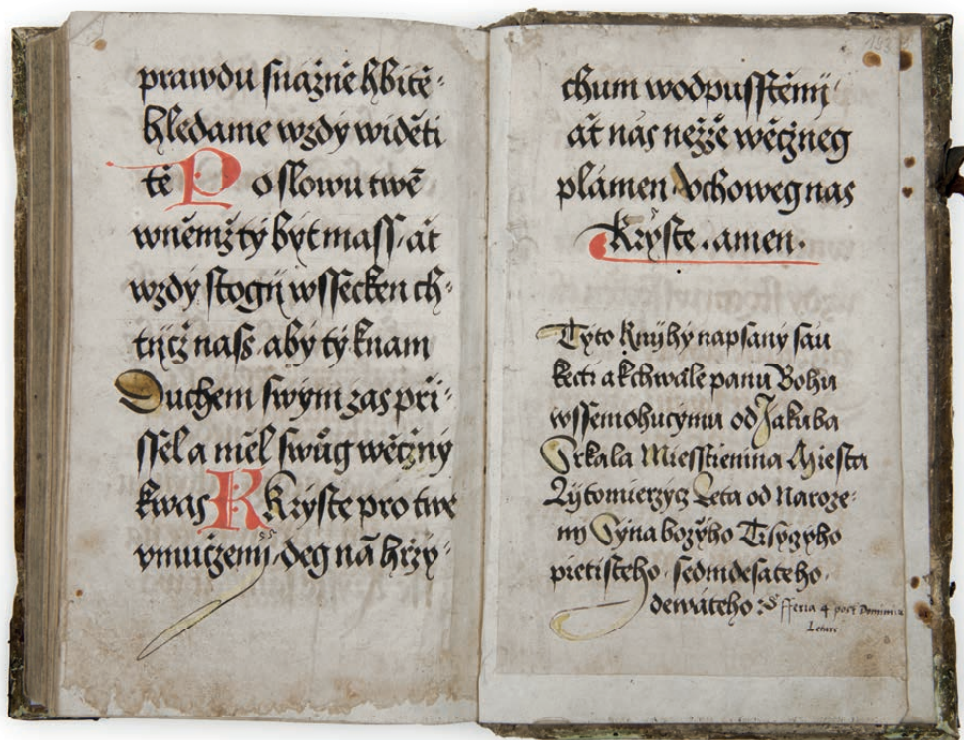 prawdu snažně hbitě-
hledame wzdy widěti
tě Po slowu twē
wněmž ty být mass, ať
wzdy stogij wssecken ch-
tijcž nass aby ty knam
Duchem swým zas při-
ssel a měl swůg wěcžný
kwas KKryste pro twe
vmucženij deg nā hřzy-
chum wodpusstěnij
ať nás nežže wěcžneg
plámen Vchoweg nas
Kryste. amen.
153
Tyto Knijhy napsany sau
kecti a kchwale panu Bohu
wssemohucymu od Jakuba
Srkala Miesstienina Miesta
Lijtomierzycz Leta od Naroze-
ni Syna bozyho Tisyczyho
pietisteho sedmdesateho
dewáteho: fferia 4 post Dominica
Letare